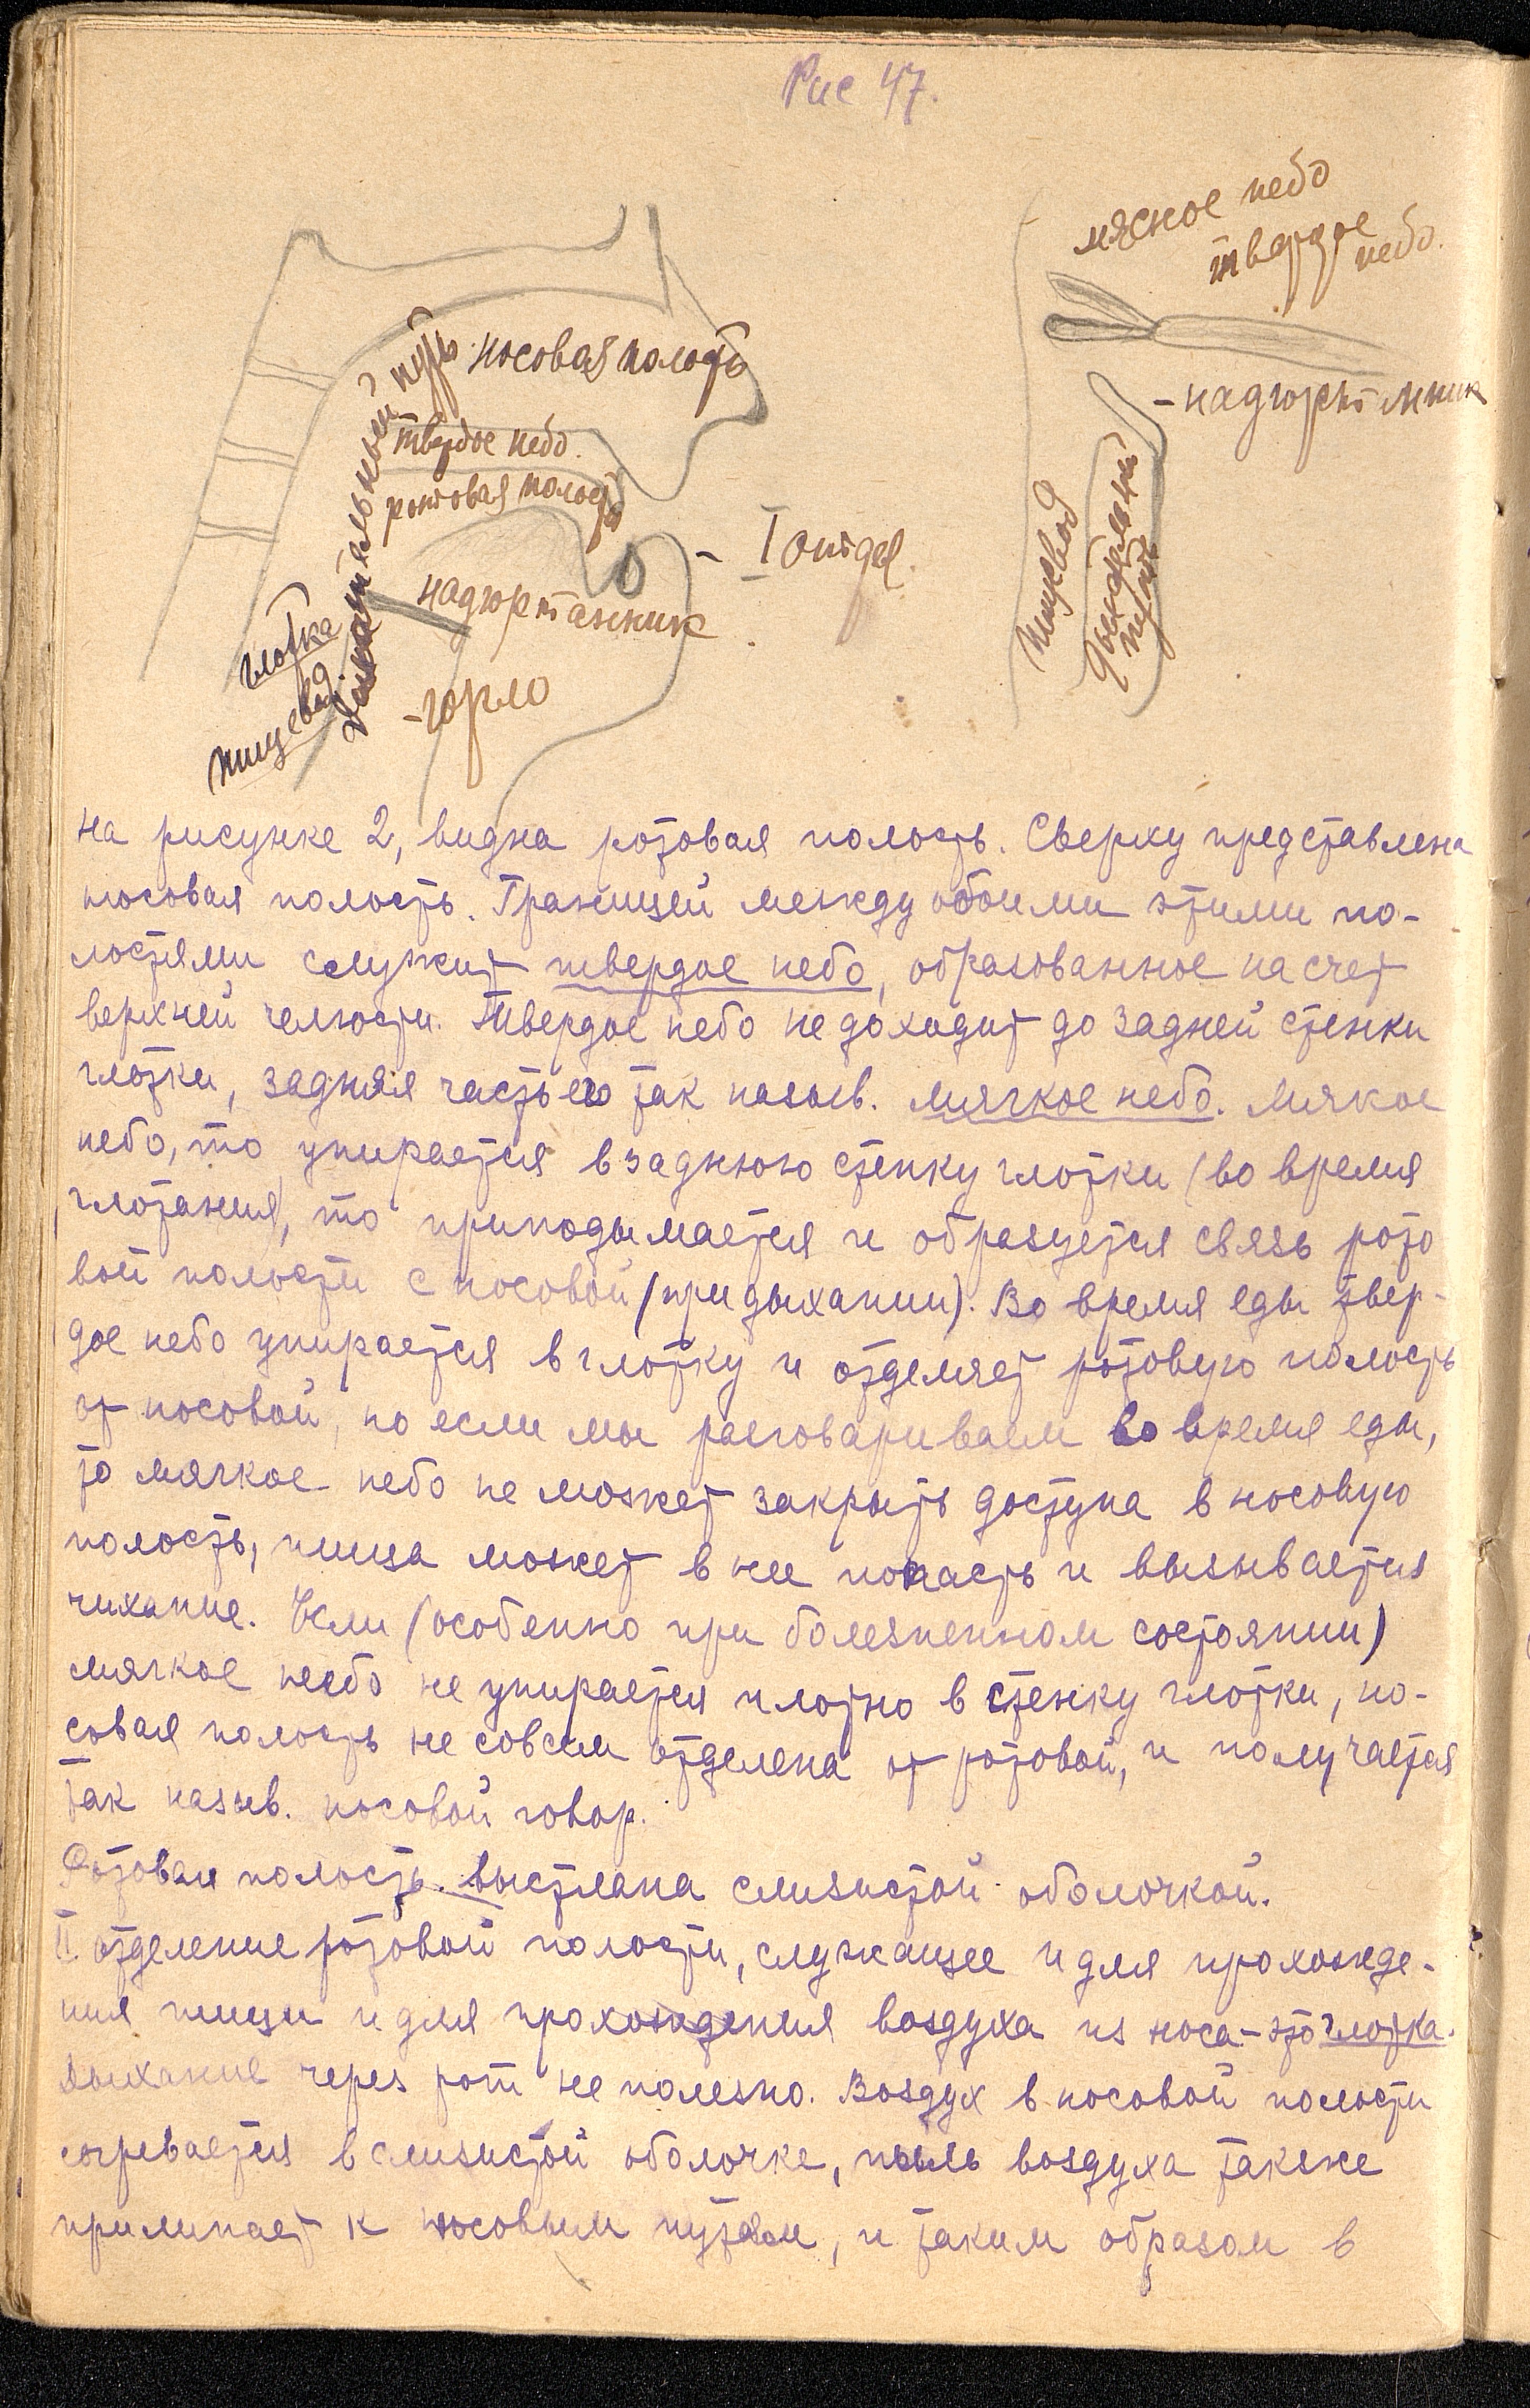 Рис 47.
мясное небо
твердое
небо.
носовая полость
дыхательный путь
твердое небо.
ротовая полость
- надгортанник
- I отдел.
надгортанник
глотка
пищевод
- горло
пищевод
дыхательный
путь
на рисунке 2, видна ротовая полость. Сверху представлена
носовая полость. Границей между обоими этими по-
лостями служит твердое небо, образованное на счет
верхней челюсти. Твердое небо не доходит до задней стенки
глотки, задняя часть его так назыв. мягкое небо. Мякое
небо, то упирается в заднюю стенку глотки (во время
глотания), то приподымается и образуется связь рото
вой полости с носовой (при дыхании). Во время еды твер-
дое небо упирается в глотку и отделяет ротовую полость
от носовой, но если мы разговариваем во время еды,
то мягкое небо не может закрыть доступа в носовую
полость, пища может в нее попасть и вызывается
чихание. Если (особенно при болезненном состоянии)
мягкое небо не упирается плотно в стенку глотки, но-
совая полость не совсем отделена от ротовой, и получается
так назыв. носовой говор.
Ротовая полость. выстлана слизистой оболочкой.
II. отделение ротовой полости, служащее и для прохожде-
ния пищи и для прохождения воздуха из носа - это глотка.
Дыхание через рот не полезно. Воздух в носовой полости
согревается в слизистой оболочке, пыль воздуха также
прилипает к носовым путям, и таким образом в